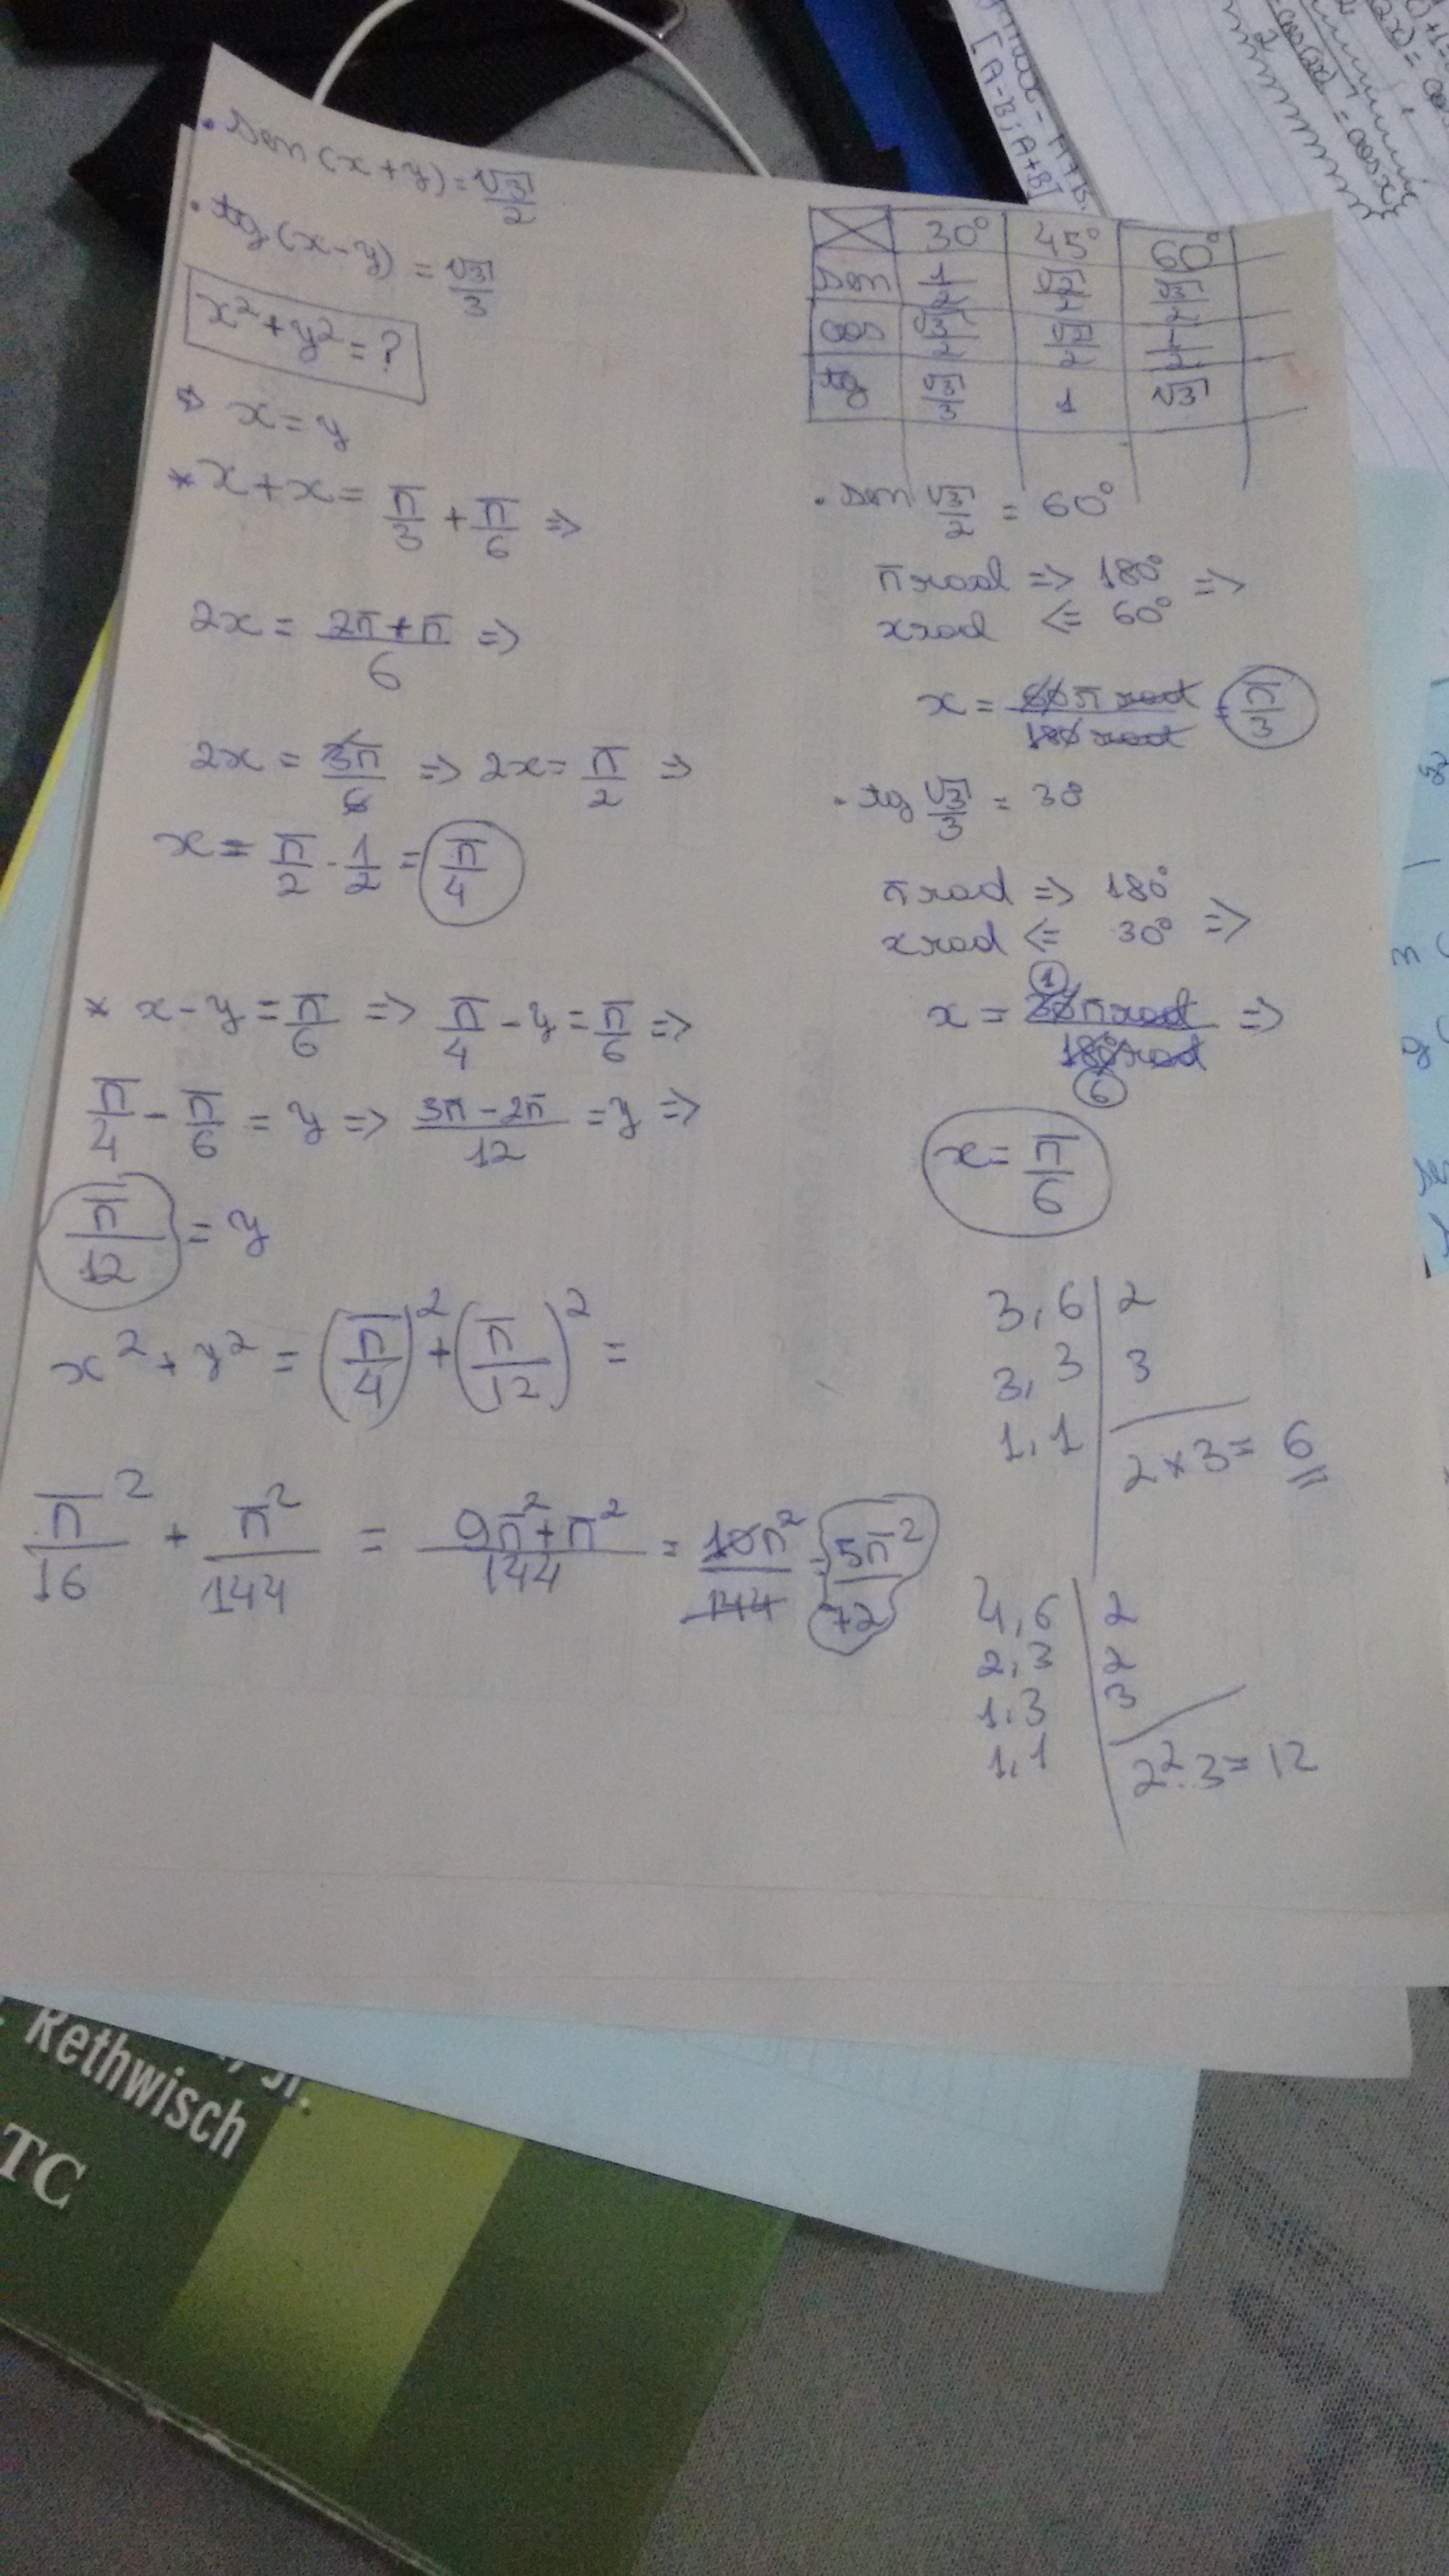 • sen(x+y)=√3/2
• tg(x-y) = √3/3
x²+y²=?
⇒ x=y
* x+x= π/3 + π/6 =>
2x= (2π+π)/6 =>
2x = 3π/6 => 2x= π/2 =>
x= π/2 · 1/2 = π/4
* x-y=π/6 => π/4 -y=π/6 =>
π/4 - π/6 = y => (3π-2π)/12 =y =>
π/12 = y
x²+y² = (π/4)²+(π/12)² =
π²/16 + π²/144 = (9π²+π²)/144 = 10π²/144 = 5π²/72
30° 45° 60°
sen 1/2 √2/2 √3/2
cos √3/2 √2/2 1/2
tg √3/3 1 √3
• sen √3/2 = 60°
π rad => 180° =>
x rad <= 60°
x= 60π rad/180 rad = π/3
• tg √3/3 = 30
π rad => 180°
x rad <= 30° =>
1
x = 30π rad/180 rad =>
6
x= π/6
3,6|2
3,3|3
1,1|2×3=6
4,6|2
2,3|2
1,3|3
1,1|2².3=12
[A-B; A+B]
Rethwisch
TC